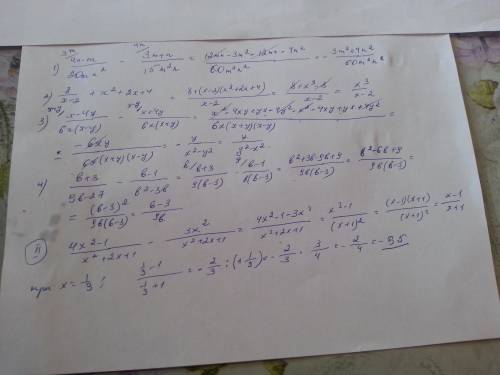 1) (4n-m)/(20mn²) - (3m+n)/(15m²n) = (12mn-3m²-12mn-4n²)/(60m²n²) = -(3m²+4n²)/(60m²n²)
2) 8/(x-2) + x²+2x+4 = (8+(x-2)(x²+2x+4))/(x-2) = (8+x³-8)/(x-2) = x³/(x-2)
3) (x-4y)/(6x(x-y)) - (x+4y)/(6x(x+y)) = =
= (-6xy)/(6x(x+y)(x-y)) = -y/(x²-y²) = y/(y²-x²)
4) (b+3)/(9b-27) - (b-1)/(b²-3b) = (b+3)/(9(b-3)) - (b-1)/(b(b-3)) = (b²+3b-9b+9)/(9b(b-3)) = (b²-6b+9)/(9b(b-3)) =
= (b-3)²/(9b(b-3)) = (b-3)/(9b)
II (4x²-1)/(x²+2x+1) - 3x²/(x²+2x+1) = (4x²-1-3x²)/(x²+2x+1) = (x²-1)/(x+1)² = ((x-1)(x+1))/(x+1)² = (x-1)/(x+1)
при x=1/3; (1/3-1)/(1/3+1) = -2/3 : (1 1/3) = -2/3 · 3/4 = -2/4 = -0,5